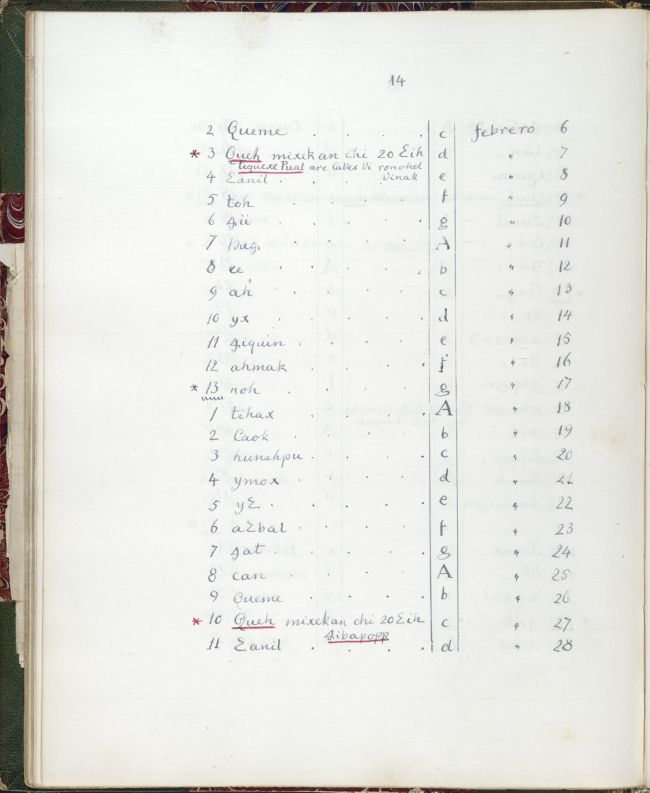 14
2 Queme . . . . c febrero 6
* 3 Queh mixekan chi 20 Eih d " 7
tequexe Pual are Cavex Vi ronohel
4 Eanil . . . vinak e " 8
5 toh . . . . f " 9
6 4ii . . . . g " 10
7 Bag. . . . . A " 11
8 ee . . . . b " 12
9 ah . . . . c " 13
10 yx . . . . d " 14
11 4iquin . . . . e " 15
12 ahmak . . . . f " 16
* 13 noh . . . . g " 17
1 tihax . . . . A " 18
2 Caok . . . . b " 19
3 hunahpu . . . . c " 20
4 ymox . . . . d " 21
5 yE . . . . e " 22
6 aEbal . . . . f " 23
7 4at . . . . g " 24
8 can . . . . A " 25
9 Queme . . . . b " 26
* 10 Queh mixekan chi 20 Eih c " 27
4ibapopp
11 Eanil . . . . d " 28